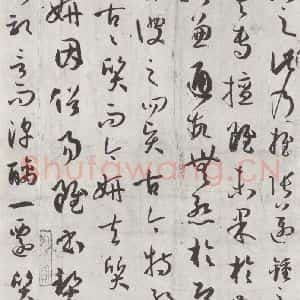 之此乃推張邁鍾之
專擅雖未果於
兼通故無慚於即
之四賢古今特
古古質而今妍夫質
妍因俗易雖書契
記言而淳醨一遷質
Shufawang.CN